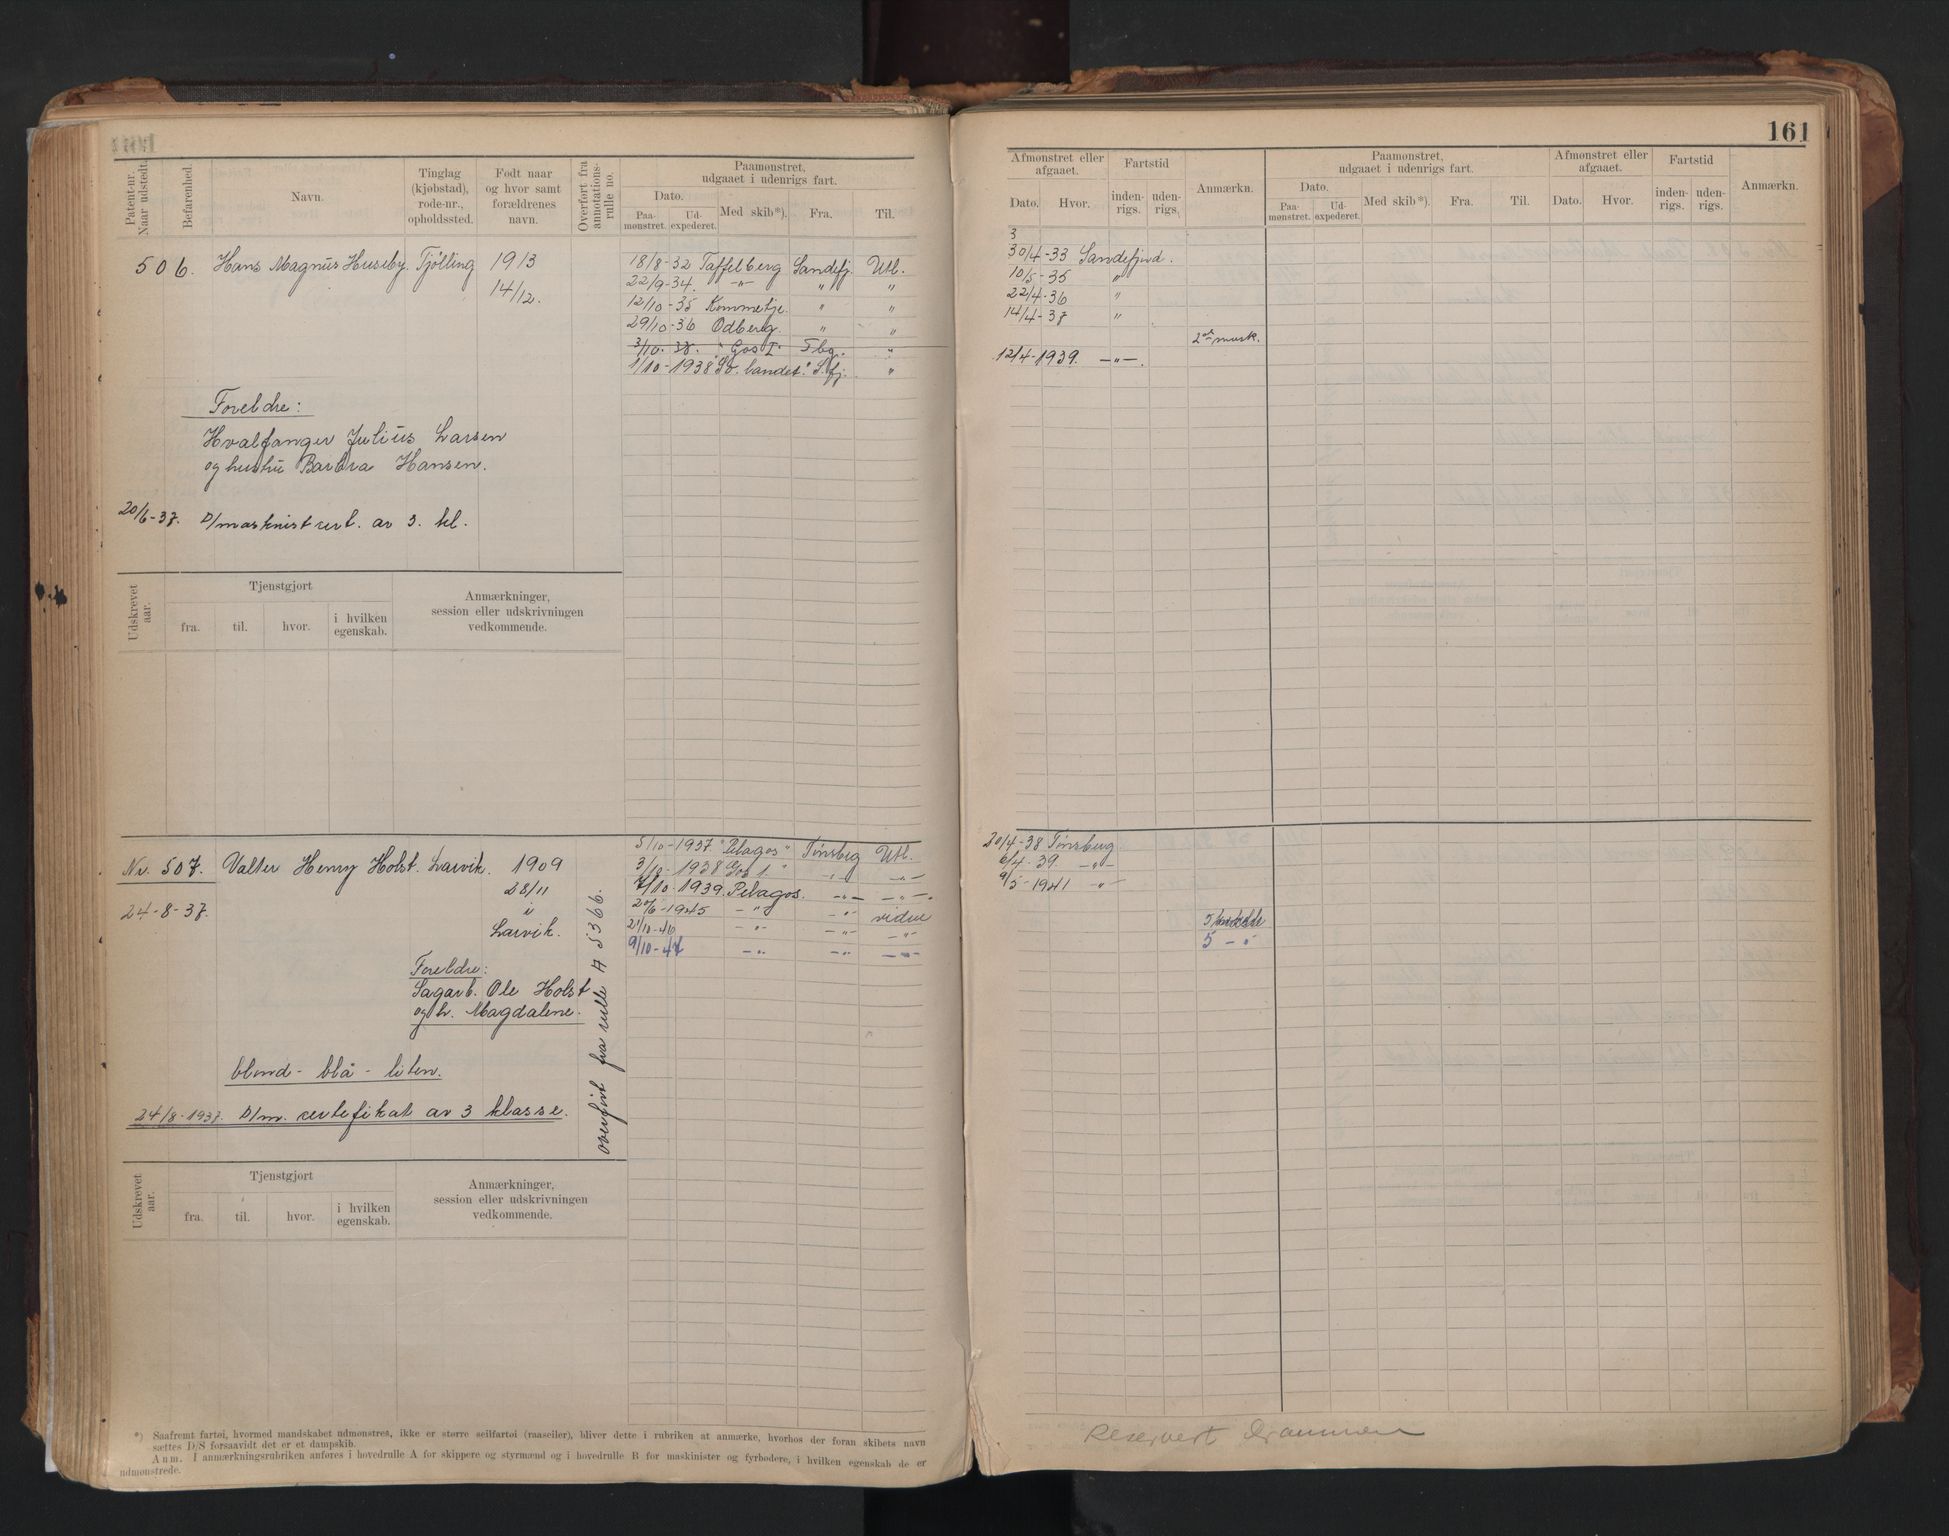 161
Patent-nr. Naar udstedt.
Befarenhed.
Navn.
Tinglag (kjøbstad), rode-nr., opholdssted.
Født naar og hvor samt forældrenes navn.
Overført fra annotations-rulle no.
Paamønstret, udgaaet i udenrigs fart.
Dato.
Paa-mønstret.
Ud-expederet.
Med skib*).
Fra.
Til.
Afmønstret eller afgaaet.
Dato.
Hvor.
Fartstid
inden-rigs.
uden-rigs.
Anmærkn.
Paamønstret, udgaaet i udenrigs fart.
Dato.
Paa-mønstret.
Ud-expederet.
Med skib*).
Fra.
Til.
Afmønstret eller afgaaet.
Dato.
Hvor.
Fartstid
inden-rigs.
uden-rigs.
Anmærkn.
506. Hans Magnus Huseby. Tjølling 1913
14/12.
18/8-32 Taffelberg Sandefj. Utl.
22/9-34. -"- " "
12/10-35 Kommetje. " "
29/10-36 Odberg. " "
3/10-38. "Gos I" Tbg. "
1/10-1938 "Sv. landet." S.fj. "
3
30/4-33 Sandefjord.
10/5-35 "
22/4-36 "
14/4-37 "
2den mask.
12/4-1939. -"-.
Foreldre:
Hvalfanger Julius Larsen
og hustru Barbra Hansen.
20/6-37. D/maskinist cert. av 3. kl.
Udskrevet aar.
Tjenstgjort
fra.
til.
hvor.
i hvilken egenskab.
Anmærkninger, session eller udskrivningen vedkommende.
Nr. 507. Valter Henry Holst. Larvik. 1909
28/11
24-8-37.
i
Larvik.
5/10-1937. "Pelagos" Tønsberg Utl.
3/10-1938 Gos 1." -"- -"-
7/10-1939. Pelagos. -"- -"-
20/6-1945 -"- -"- vidre
21/10-46 -"- -"- -"-
9/10-47 -"- -"- -"-
20/4-38 Tønsberg.
6/4-39. -"-
9/5-1941 -"-
5 -"-
Foreldre:
Sagarb. Ole Holst
og h. Magdalene.
overført fra rulle A 5366.
blond - blå - liten.
24/8-1937. D/m. certefikat av 3 klasse.
Udskrevet aar.
Tjenstgjort
fra.
til.
hvor.
i hvilken egenskab.
Anmærkninger, session eller udskrivningen vedkommende.
*) Saafremt fartøi, hvormed mandskabet udmønstres, ikke er større seilfartøi (raaseiler), bliver dette i rubriken at anmærke, hvorhos der foran skibets navn
sættes D/S forsaavidt det er et dampskib.
Anm. I anmærkningsrubriken anføres i hovedrulle A for skippere og styrmænd og i hovedrulle B for maskinister og fyrbødere, i hvilken egenskab de er
udmønstrede.
Reservert Drammen